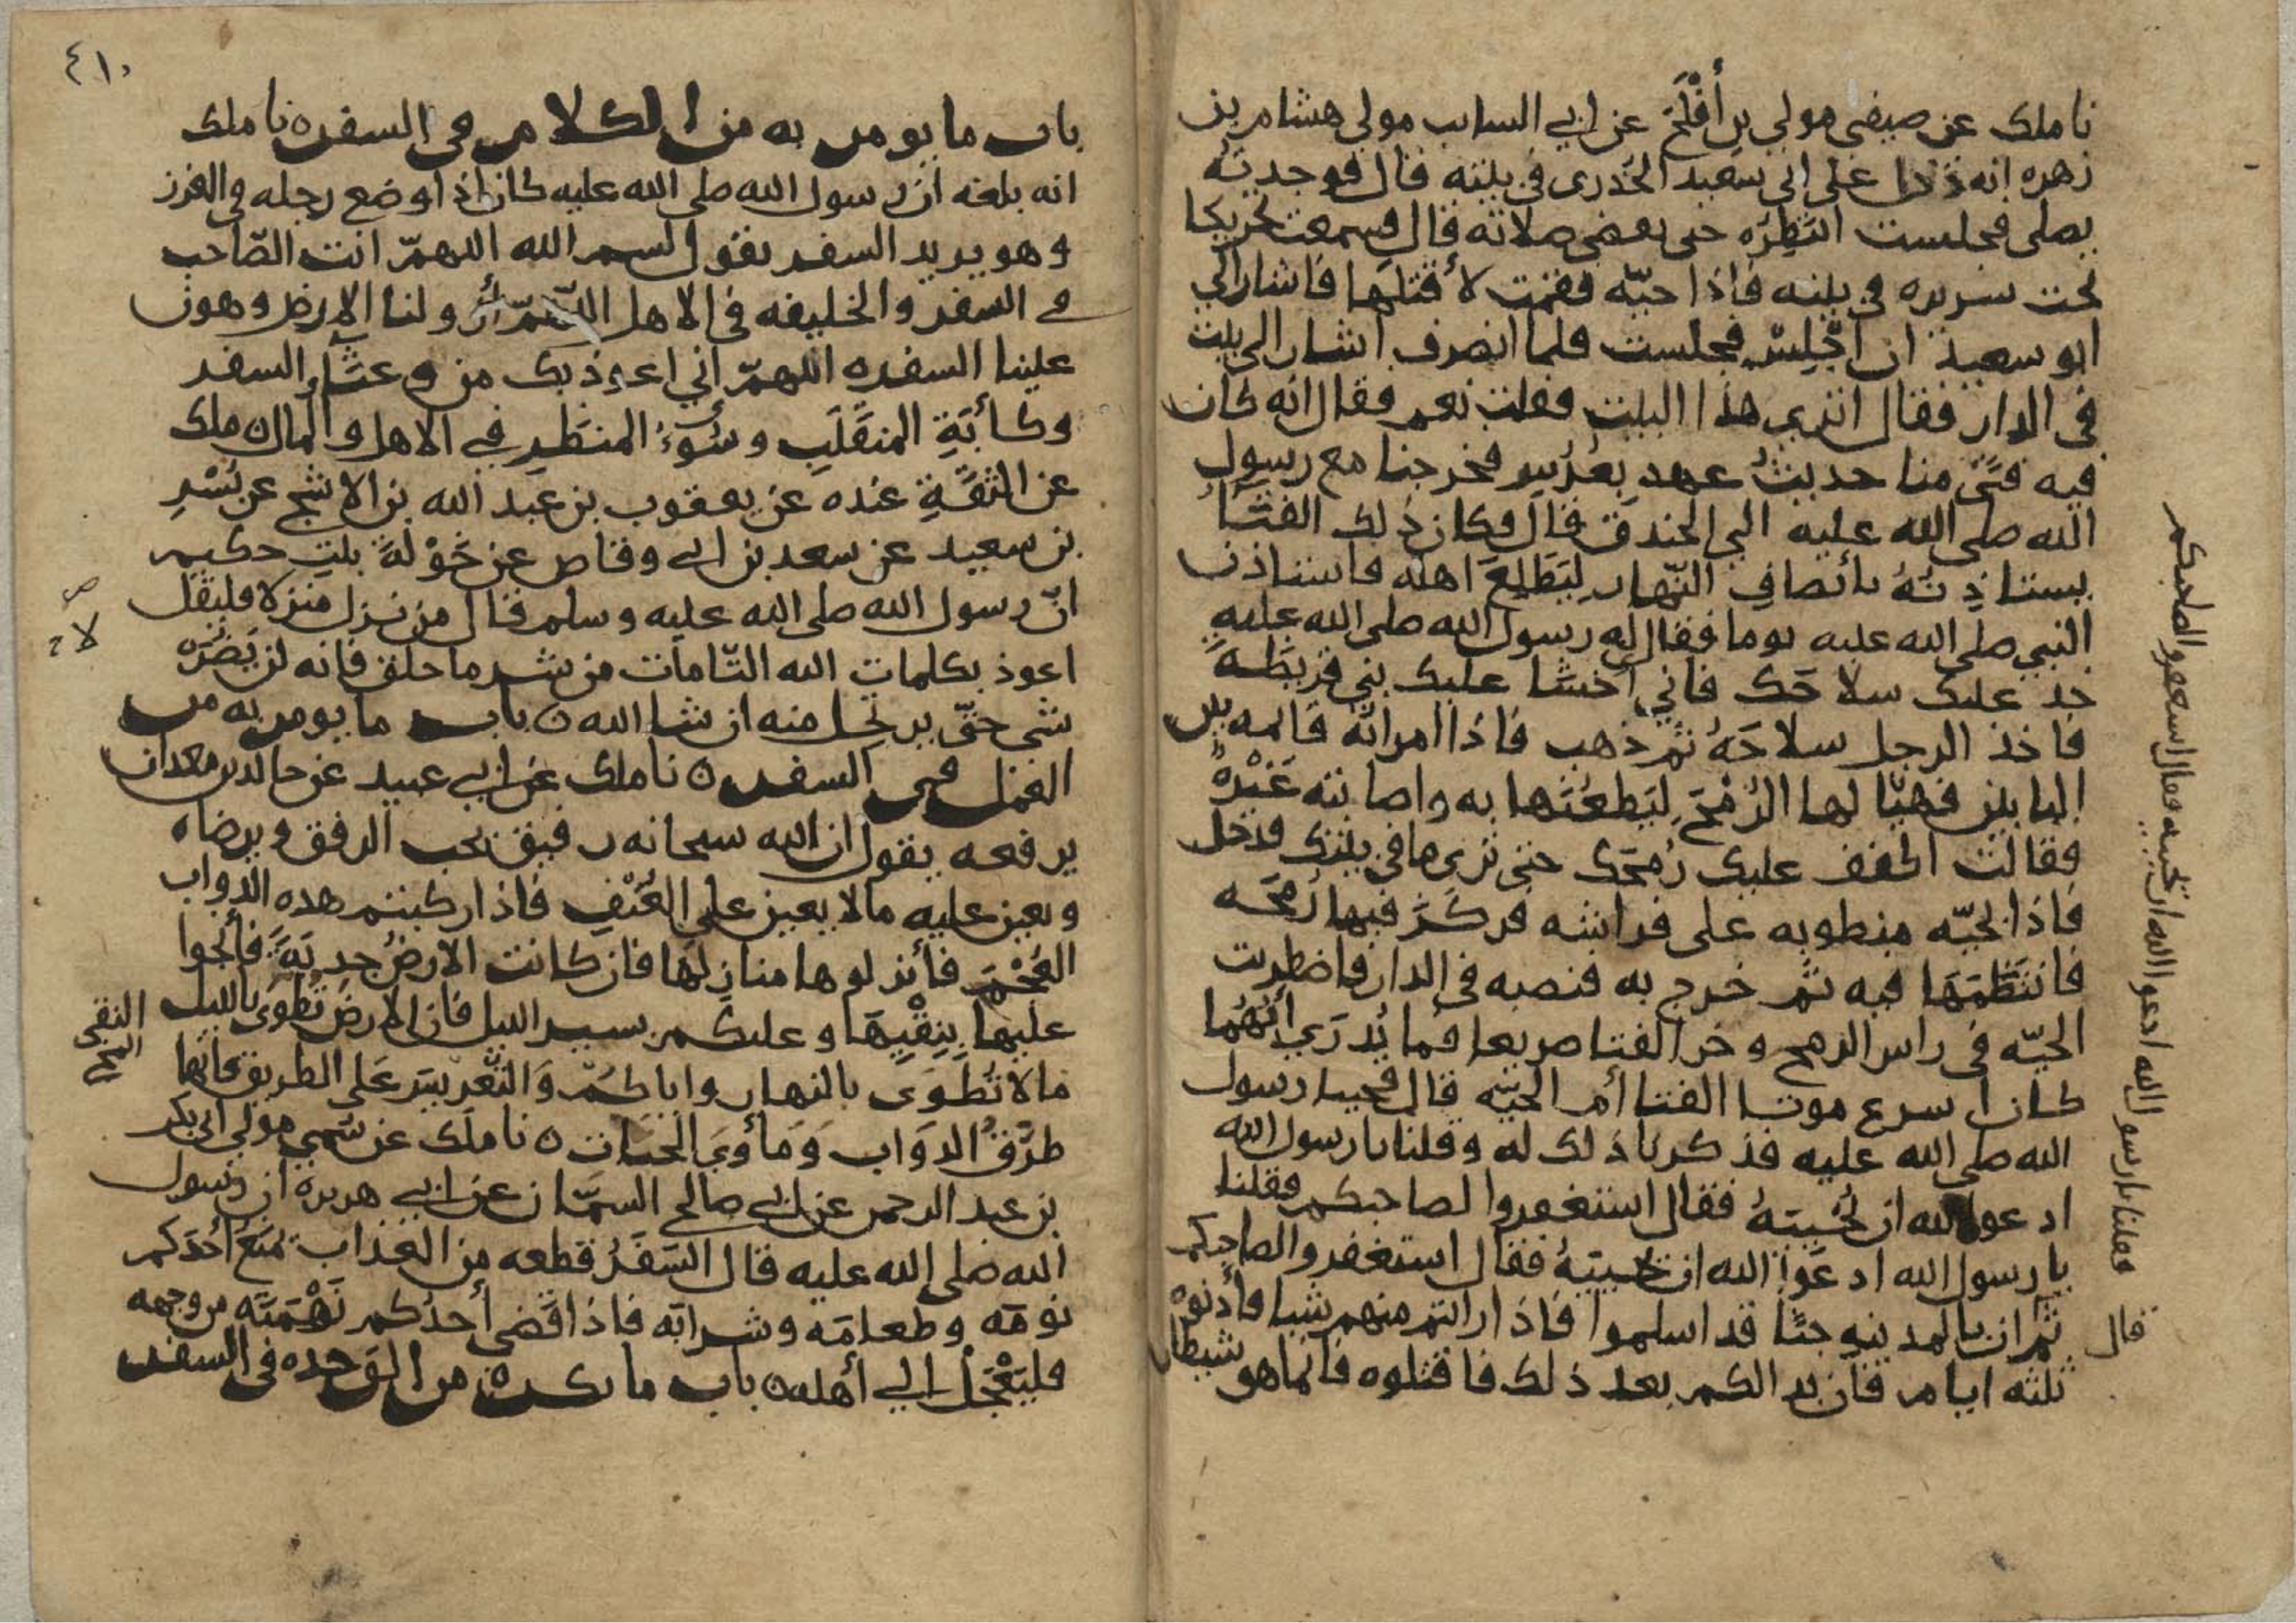 نا ملك عن صيفي مولى بن أَفْلَحَ عن ابي السايب مولى هشام بن
زهره انه دخل على ابي سعيد الخدري في بيته قال فوجدته
يصلي فجلست انتظِرُه حتى يقضي صلاته قال فسمعت تحريكا
تحت سريره في بيته فاذا حيّه فقمت لأقتلها فاشار الي
ابو سعيد ان اجْلِسْ فجلست فلما انصرف اشار الى بيت
في الدار فقال اترى هذا البيت فقلت نعم فقال انه كان
فيه فتى منا حديثُ عهدٍ بعُرُسٍ فخرجنا مع رسول
الله صلى الله عليه الى الخندق قال فكان ذلك الفتَا
يستاذِنُهُ بأنصاف النّهارِ لِيَطَّلِعَ اهله فاستاذن
النبي صلى الله عليه يوما فقال له رسول الله صلى الله عليه
خذ عليك سلاحَك فاني اخشا عليك بني قريظةَ
فاخذ الرجل سلاحَهُ ثم ذهب فاذا امراته قايمه بين
البابين فهيّا لها الرُمْحَ لِيَطعُنَها به واصابته غَيْرةٌ
فقالت اكفف عليك رُمحَك حتى ترى ما في بيتك فدخل
فاذا بحيّه منطويه على فراشه فركَزَ فيها رُمحَه
فانتَظَمَهَا فيه ثم خرج به فنصبه في الدار فاضطربت
الحيّه في راس الرمح وخر الفتا صريعا فما يُدرَي ايُّهُما
كان اسرع موتا الفتا أم الحيّه قال فجينا رسول
الله صلى الله عليه فذكرنا ذلك له وقلنا يا رسول الله
ادعوا الله ان يُحْييَهُ فقال استغفروا لصاحبكم فقلنا
يا رسول الله ادعوا الله ان يحييَهُ فقال استغفروا لصاحبكم
ثم ان بالمدينه جنًا قد اسلموا فاذا رايتم منهم شيا فأذنوه
ثلثه ايام فان بدا لكم بعد ذلك فاقتلوه فانما هو شيطان
وقلنا يا رسول الله ادعوا الله ان يحييه فقال استغفروا لصاحبكم
قال
٤١٠
باب ما يومر به من الكلام في السفر ٥ نا ملك
انه بلغه ان رسول الله صلى الله عليه كان اذا وضع رجله في الغرز
وهو يريد السفر يقول بسم الله اللهمّ انت الصّاحب
في السفر والخليفه في الاهل اللهمّ أزو لنا الارض وهون
علينا السفر ٥ اللهمّ اني اعوذ بك من وعثَآءِ السفر
وكأبَةِ المنقَلَبِ وسُوءُ المنظَرِ في الاهل والمال ٥ ملك
عن الثقَةِ عنده عن يعقوب بن عبد الله بن الاشج عن بُسْرِ
بن سعيد عن سعد بن ابي وقاص عن خَوْلَةَ بنت حكيم
انّ رسول الله صلى الله عليه وسلم قال من نزل منزلا فليقل
اعوذ بكلمات الله التّامات من شر ما خلق فانه لن يَضُرَه
شي حتّى يرتحل منه ان شا الله ٥ باب ما يومر به من
العمل في السفر ٥ نا ملك عن ابي عبيد عن خالد بن معدان
يرفعه يقول ان الله سبحانه رفيق يحب الرفق ويرضاه
ويعين عليه مالا يعين على العُنْفِ فاذا ركبتم هذه الدواب
العُجْمَ فأنزلوها منازِلَها فان كانت الارضُ جدِبَةً فأنجوا
عليها بِنِقْيِهَا وعليكم بسير الليل فان الارضَ تُطوَى بالليل
ما لا تُطوَى بالنهار واياكُمْ وَالتّعْريسَ عَلى الطريق فانها
طرُقُ الدوَاب وَمَأوَى الحيات ٥ نا ملك عن سُمَيٍ مولى ابي بكر
بن عبد الرحمن عن ابي صالح السمّان عن ابي هريرة ان رسول
الله صلى الله عليه قال السّفَرُ قطعه من العذاب يمنَعُ أحَدَكم
نومَه وطعامَه وشرابَه فاذا قضى أحدُكم نَهْمَتَه من وجهه
فليَعْجَلْ الي أهله ٥ باب ما يكره من الوَحده في السفر
النقى
المخ